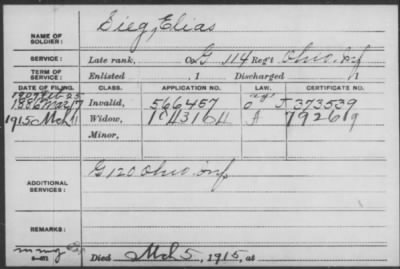 NAME OF SOLDIER: Sieg, Elias
SERVICE: Late rank, Co G 114 Reg't Ohio Inf
TERM OF SERVICE: Enlisted , 1 Discharged , 1
DATE OF FILING. CLASS. APPLICATION NO. LAW. CERTIFICATE NO.
1886 Invalid, 566457 J 373539
1915 Mch 11 Widow, A 792619
Minor,
ADDITIONAL SERVICES: G 120 Ohio Inf
REMARKS:
Died Mch 5, 1915, at